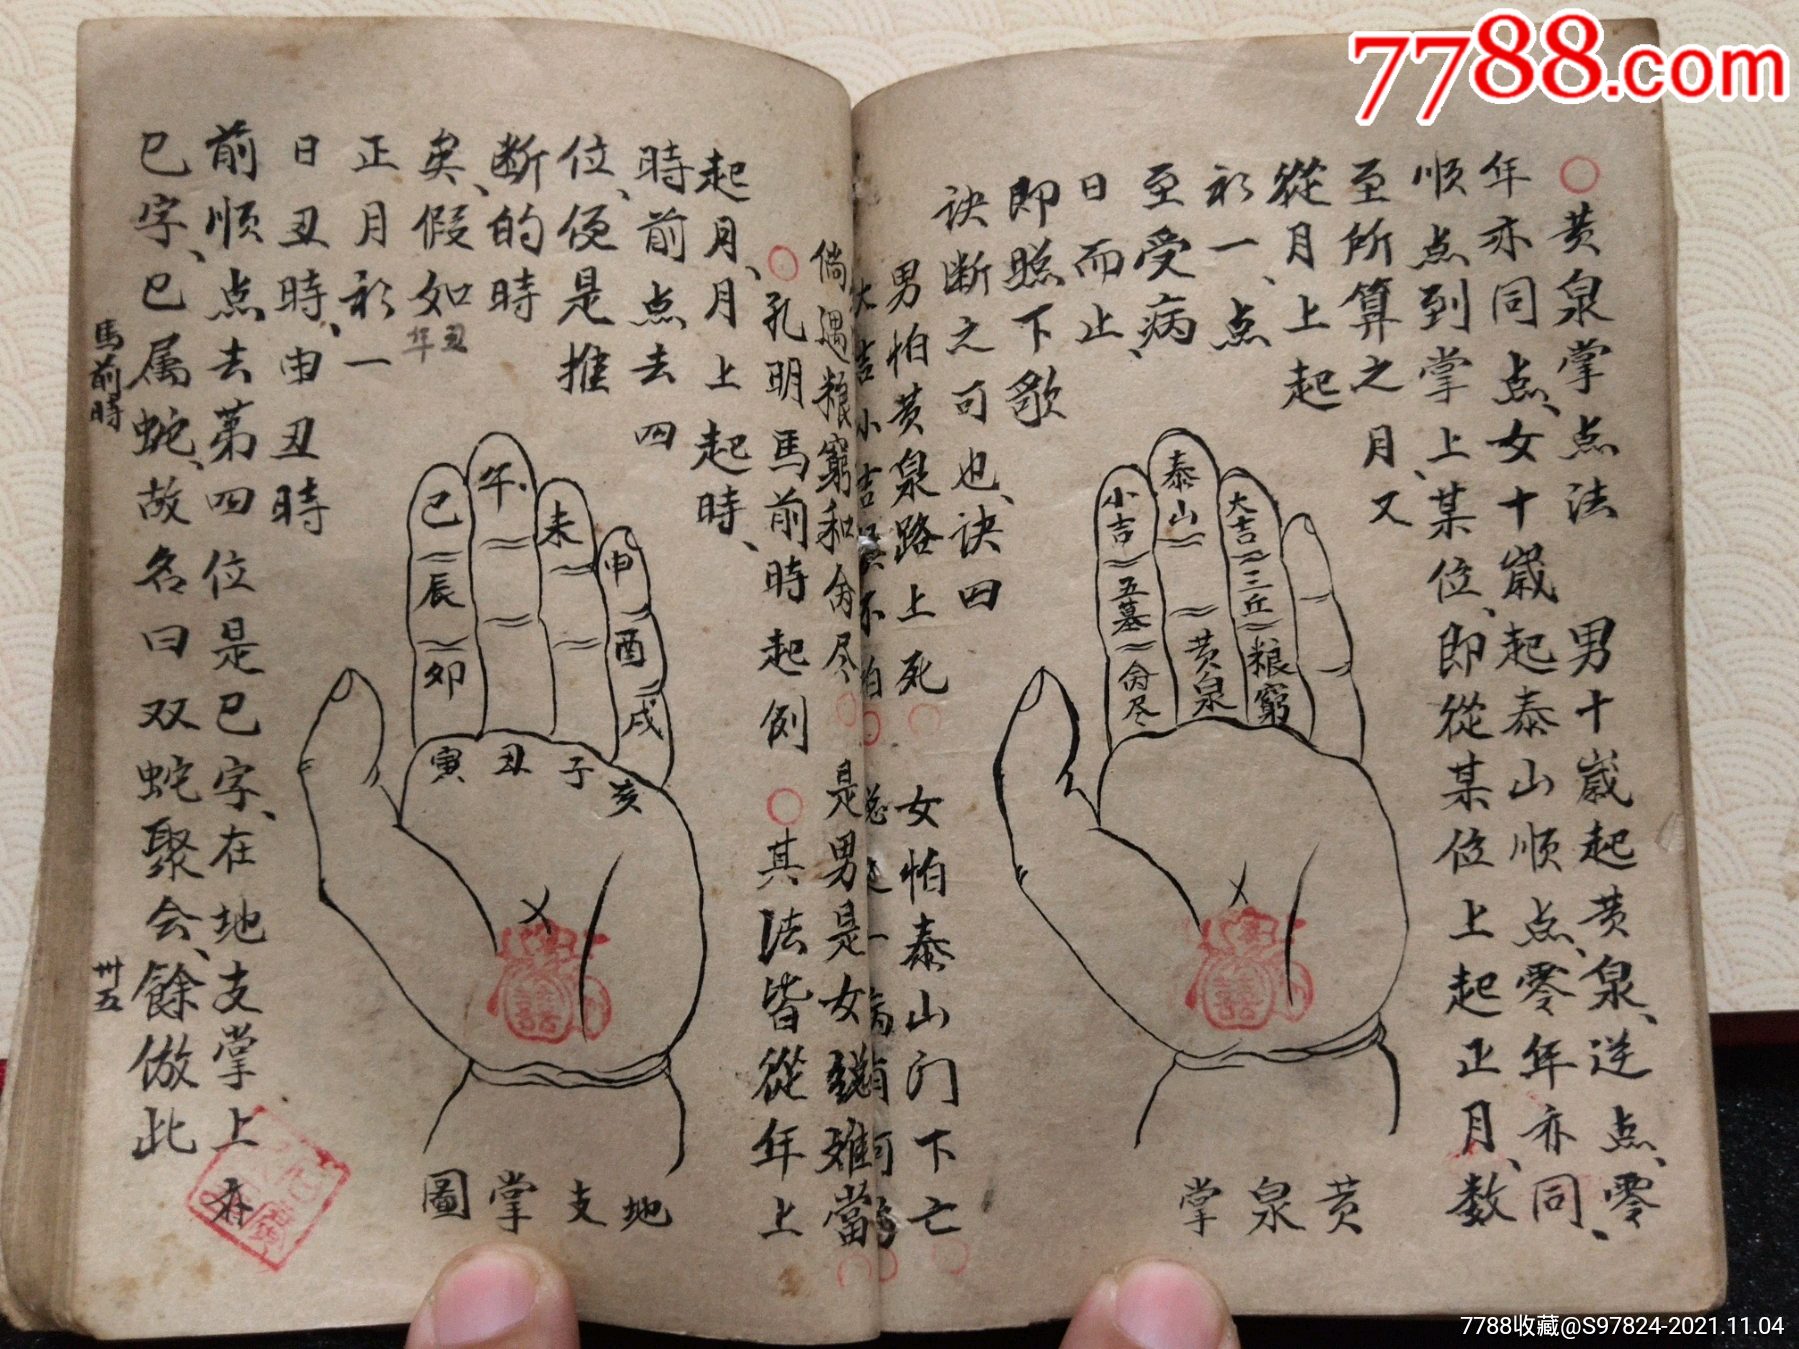 7788.com
○黄泉掌点法　男十歲起黄泉、逆点、零
年亦同点、女十歲起泰山順点、零年亦同、
順点到掌上某位、即從某位上起正月、数
至所算之月、又
從月上起
初一、点
至受病、
日而止、
即照下歌
訣断之可也、訣四
男怕黄泉路上死○　女怕泰山门下亡○
大吉小吉
倘遇粮窮和命尽○是男是女難當○
○孔明馬前時起例　○其法皆從年上
起月、月上起時、
時前点去四
位、便是推
断的時
矣、假如丑年
正月初一
日丑時、由丑時
前順点去第四位是巳字、在地支掌上
巳字、巳属蛇、故名曰双蛇聚会、餘倣此
馬前時
卅五
小吉
五墓
命尽
泰山
黄泉
大吉
三丘
粮窮
黄泉掌
巳
辰
卯
午
未
申
酉
戌
寅
丑
子
亥
地支掌圖
7788收藏@S97824-2021.11.04